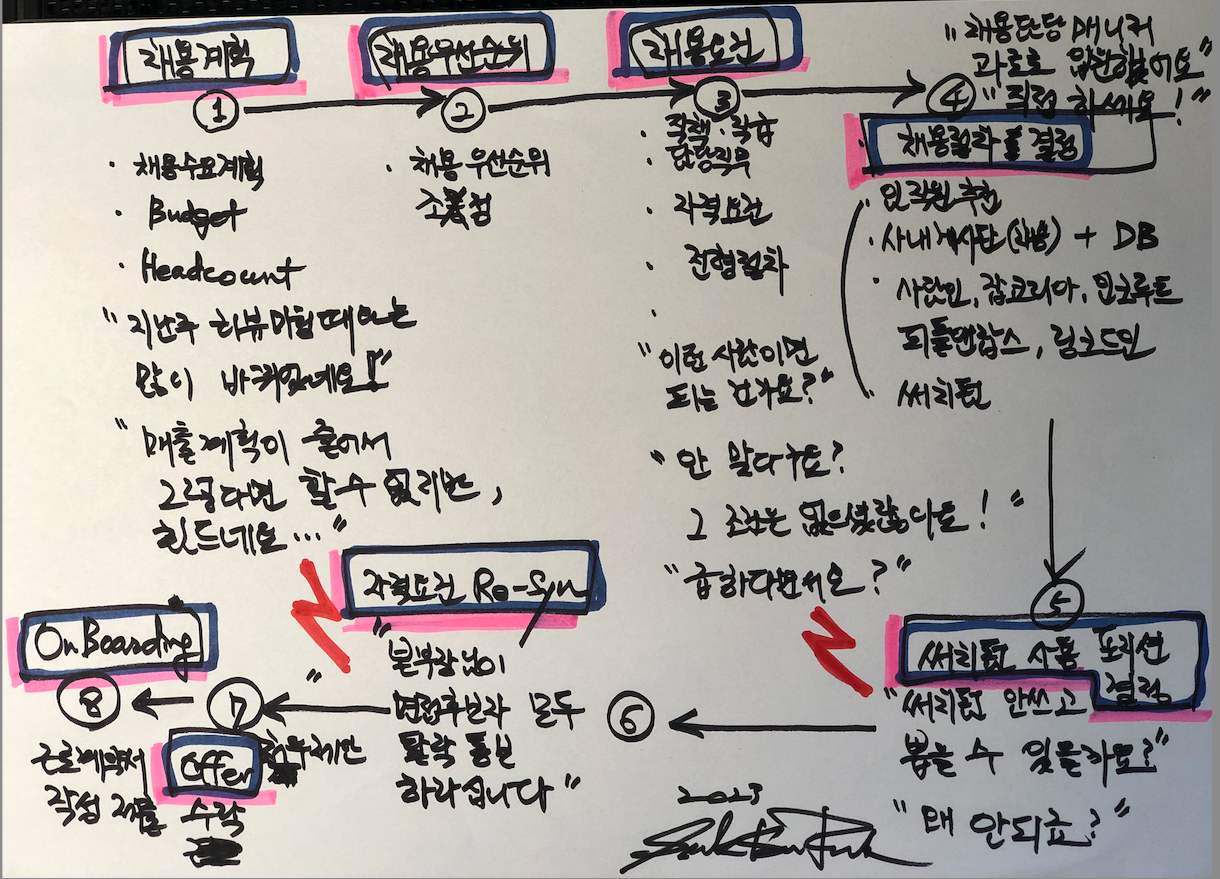 채용계획
①
· 채용수요계획
· Budget
· Headcount
"지난주 리뷰미팅때와는
많이 바뀌었네요!"
"매출계획이 줄어서
그렇다면 할 수 없지만,
힘드네요..."
채용우선순위
②
· 채용 우선순위
조정
채용요건
③
· 직책·직급
· 담당직무
· 자격요건
· 전형절차
·
"이런 사람이면
되는 건가요?"
"안 맞다구요?
그 조건은 없으셨잖아요!"
"급하다면서요?"
"채용담당 매니저
과로로 입원했어요"
"직접 하세요!"
④
채용절차 결정
· 임직원 추천
· 사내게시판(채용) + DB
· 사람인, 잡코리아, 인크루트
피플앤잡스, 링크드인
· 써치펌
⑤
써치펌 사용 포지션
결정
"써치펌 안쓰고
뽑을 수 있을까요?"
"왜 안되죠?"
⑥
자격요건 Re-Syn
"본부장님이
면접후보자 모두
탈락 통보
하라십니다"
⑦
Offer
수락
⑧
OnBoarding
근로계약서
작성 제출
2023